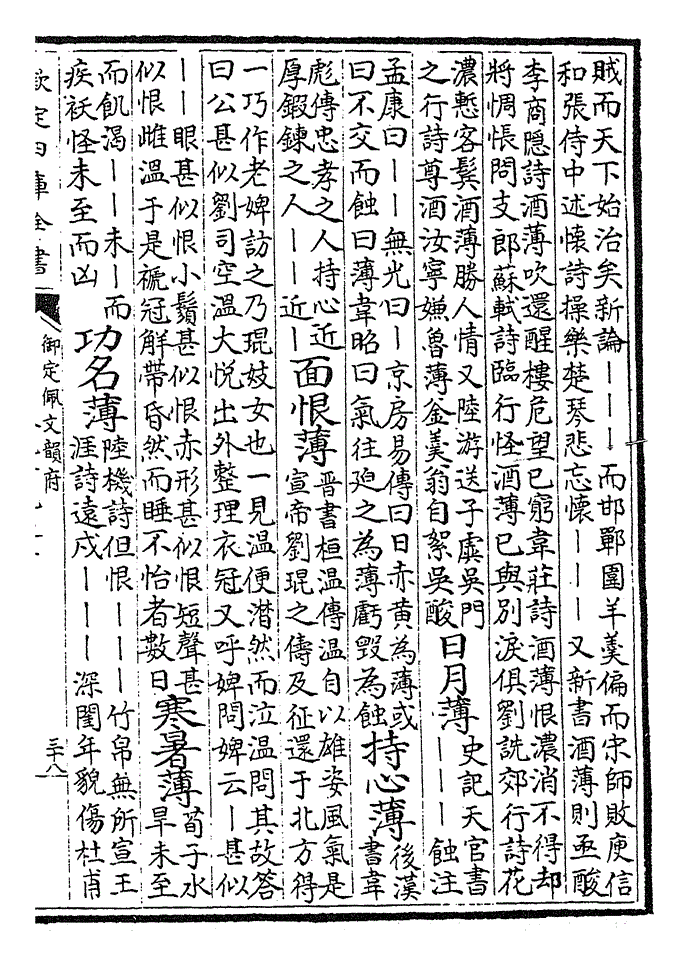 賊而天下始治矣新論｜｜｜而邯鄲圍羊羹偏而宋師敗庾信
和張侍中述懷詩操樂楚琴悲忘懷｜｜｜又新書酒薄則亟酸
李商隱詩酒薄吹還醒樓危望已窮韋莊詩酒薄恨濃消不得却
將惆悵問支郎蘇軾詩臨行怪酒薄已與別淚俱劉詵郊行詩花
濃慙客鬢酒薄勝人情又陸游送子虡吳門
之行詩尊酒汝寧嫌魯薄釜羹翁自絮吳酸
日月薄
史記天官書
｜｜｜蝕注
孟康曰｜｜無光曰｜京房易傳曰日赤黃為薄或
曰不交而蝕曰薄韋昭曰氣往迫之為薄虧毀為蝕
持心薄
後漢
書韋
彪傳忠孝之人持心近
厚鍛鍊之人｜｜近｜
面恨薄
晉書桓溫傳溫自以雄姿風氣是
宣帝劉琨之儔及征還于北方得
一巧作老婢訪之乃琨妓女也一見溫便潸然而泣溫問其故答
曰公甚似劉司空溫大悅出外整理衣冠又呼婢問婢云｜甚似
｜｜眼甚似恨小鬚甚似恨赤形甚似恨短聲甚
似恨雌溫于是褫冠解帶昏然而睡不怡者數日
寒暑薄
荀子水
旱未至
而飢渴｜｜未｜而
疾祅怪未至而凶
功名薄
陸機詩但恨｜｜｜竹帛無所宣王
涯詩遠戍｜｜｜深閨年貌傷杜甫
欽定四庫全書
御定佩文韻府
三十八